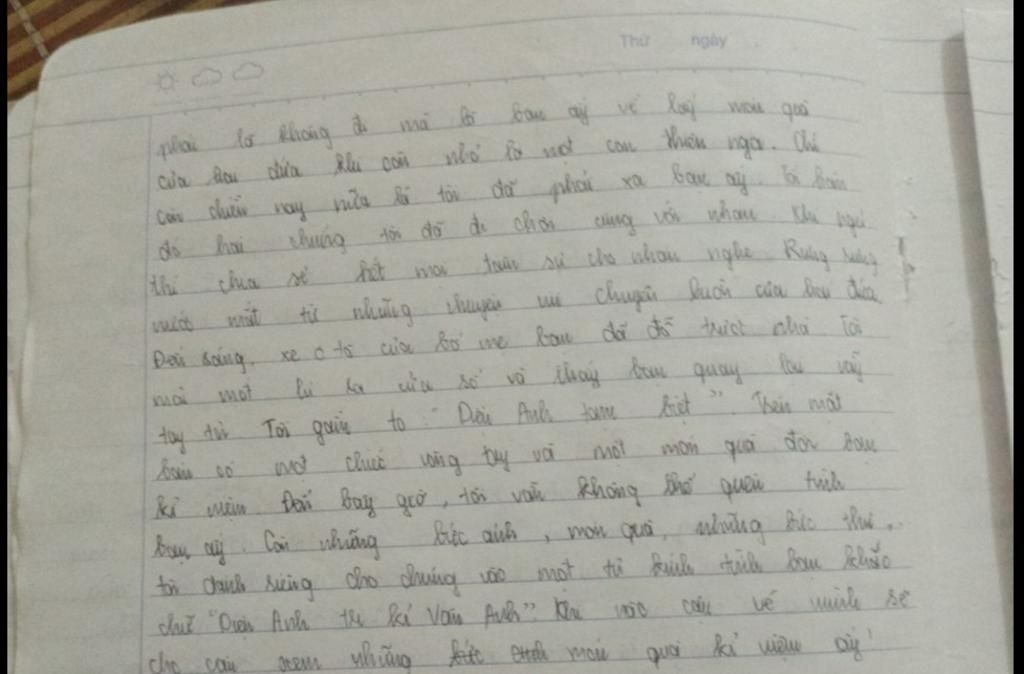 Thứ ngày
phải là không đi mà là bạn ấy về lấy món quà
của hai đứa khi còn nhỏ là một con thiên nga. Chỉ
còn chiều nay nữa là tôi đã phải xa bạn ấy. Tôi
đó hai chúng tôi đã đi chơi cùng với nhau. Khi ngủ
thì chia sẻ hết mọi tâm sự cho nhau nghe. Rưng rưng
nước mắt từ những chuyện vui chuyện buồn của hai đứa.
Đến sáng, xe ô tô của bố mẹ bạn đã đỗ trước nhà. Tôi
mải một ra cửa sổ và thấy bạn quay lại vẫy
tay từ. Tôi to "Diệu Anh tạm biệt". Trên mắt
bạn có một chiếc vòng tay và một món quà đôi bạn
kỉ niệm. Đến bây giờ, tôi vẫn không thể quên tình
bạn ấy. Còn những bức ảnh, món quà, những bức thư,
tôi dành riêng cho chúng vào một tủ kính tình bạn khắc
chữ "Diệu Anh tri kỉ Vân Anh". Khi nào cậu về mình sẽ
cho cậu xem những món quà kỉ niệm ấy!